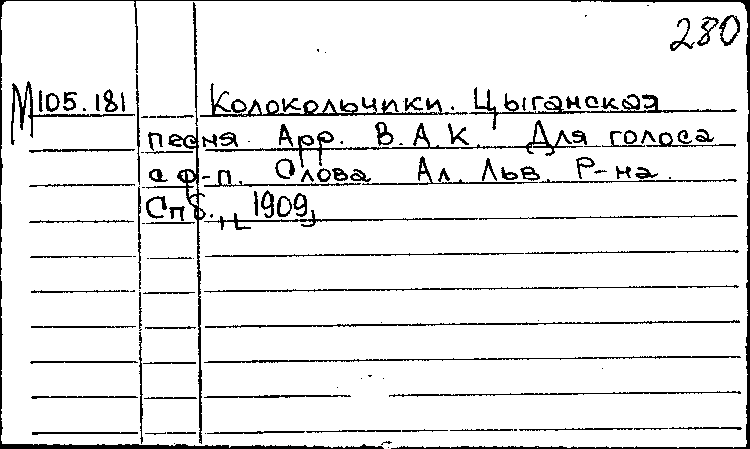 280
М105.181 Колокольчики. Цыганская
песня. Арр. В. А. К. Для голоса
с ф-п. Слова Ал. Льв. Р-на.
Спб., [1909]